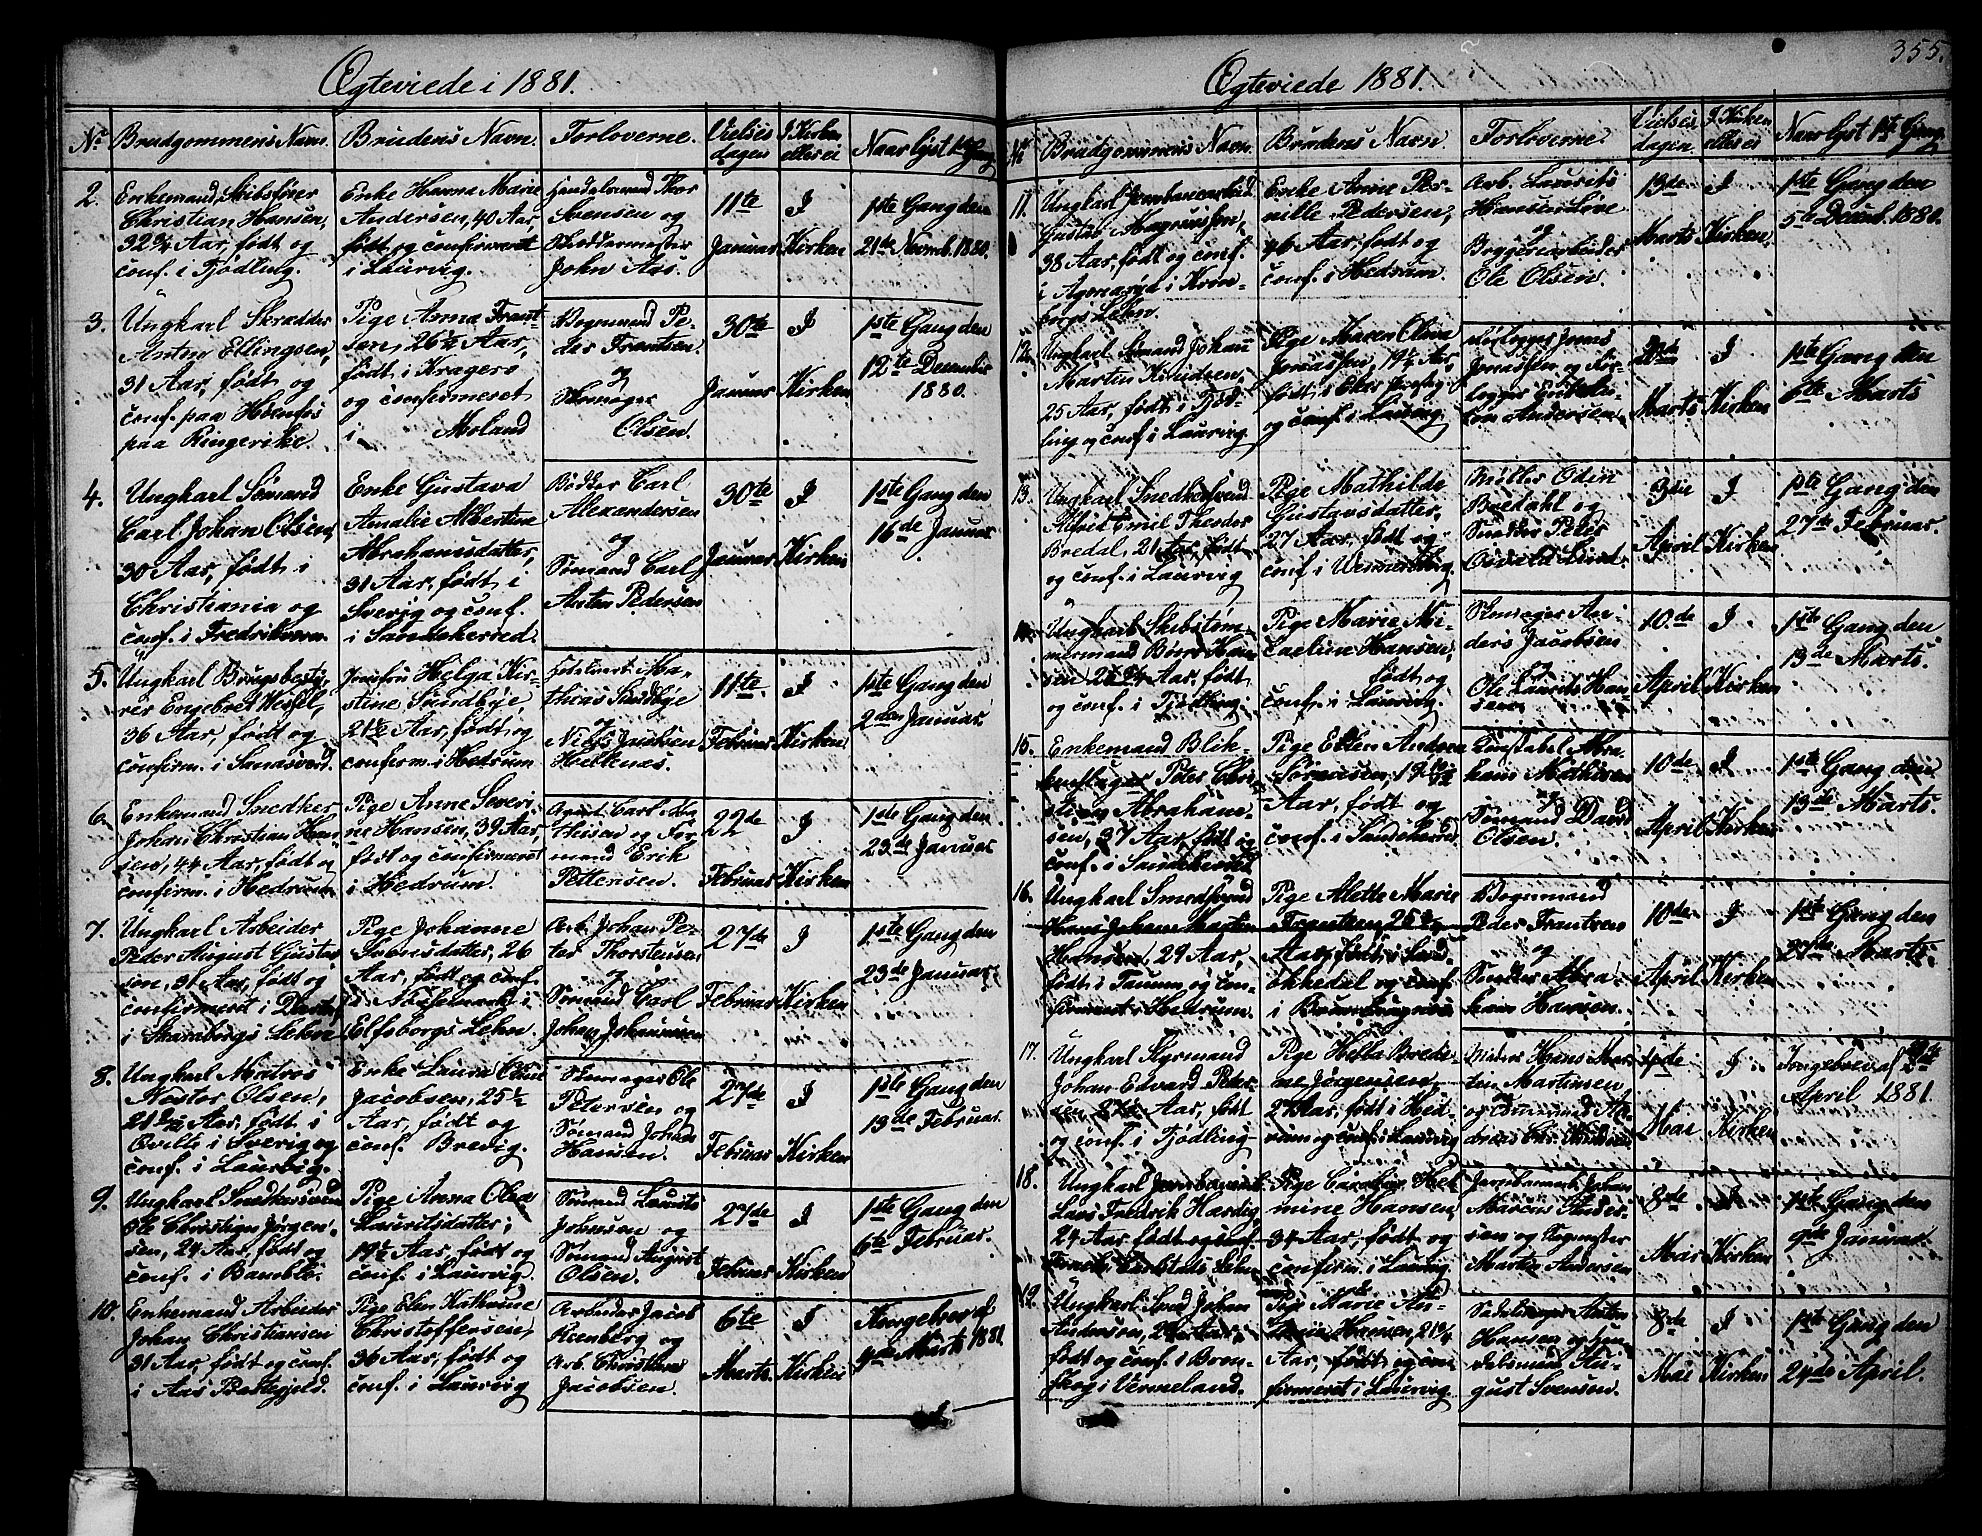 Ægteviede i 1881.
No Brudgommens Navn. Brudens Navn. Forloverne. Vielses dagen I Kirken eller ei Naar lyst 1ste Gang
2. Enkemand Skibsfører
Christian Hansen,
32 3/4 Aar, født og
conf. i Tjødling.
Enke Hanna Marie
Andersen, 40 Aar,
født og confirmeret
i Laurvig.
Handelsmand Thor
Svensen og
John Aas.
11te
Januar
I
Kirken
1ste Gang den
21de Novmb. 1880.
3. Ungkarl Skrædder
Anton Ellingsen,
31 Aar, født og
conf. paa Hønefos
paa Ringerike.
Pige Anna Frant-
sen, 26 1/2 Aar,
født i Kragerø
og confirmeret
i Moland
Bogmand Pe-
der Frantsen
og
Skomager
Olsen.
30te
Januar
I
Kirken
1ste Gang den
12te December
1880.
4. Ungkarl Sømand
Carl Johan Olsen,
30 Aar, født i
Christiania og
conf. i Fredriksværn.
Enke Gustava
Amalie Albertine
Abrahamsdatter,
31 Aar, født i
Sverig og conf.
i Sandeherred
Bødker Carl
Alexandersen
og
Sømand Carl
Anton Pedersen
30te
Januar
I
Kirken
1ste Gang den
16de Januar.
5. Ungkarl Brugsbesty-
rer Engebret Wessel,
36 Aar, født og
confirm. i
Jomfru Helga Kir-
stine Sundbye,
21 1/2 Aar, født og
confirm. i Hedrum
Ma-
thias Sundbye
og
Niels Jacobsen
11te
Februar
I
Kirken
1ste Gang den
2den Januar.
6. Enkemand Snedker
Johan Christian Han-
sen, 44 Aar, født og
confirm. i Hedrum
Pige Anne Severi-
ne Hansen, 39 Aar,
født og confirmeret
i Hedrum.
Agent Carl Ma-
thisen og For-
mand Erik
Pettersen.
22de
Februar
I
Kirken
1ste Gang den
23de Januar
7. Ungkarl Arbeider
Peder August Gustav-
sen, 31 Aar, født og
confirmeret i
i Skaraborgs Lehn
Pige Johanne
Svensdatter, 26
Aar, født og conf.
i
Elfsborgs Lehn.
Arb. Johan Pe-
ter Thorstensen
og
Sømand Carl
Johan Johannesen
27de
Februar
I
Kirken
1ste Gang den
23de Januar.
8. Ungkarl Matros
Olsen,
21 Aar, født i
i Sverig og
conf. i Laurvig.
Enke Laura Oline
Jacobsen, 25 1/2
Aar, født og
conf. Brevig.
Skomager Ole
Petersen og
Sømand Johan
Hansen.
27de
Februar
I
Kirken
1ste Gang den
13de Februar.
9. Ungkarl Snedkersvend
Ole Christian Jørgen-
sen, 24 Aar, født og
conf. i Bamble.
Pige Anna Olea
Lauritsdatter,
19 1/2 Aar, født og
conf. i Laurvig.
Sømand Laurits
Johnsen og
Sømand August
Olsen.
27de
Februar
I
Kirken
1ste Gang den
6te Februar.
10. Enkemand Arbeider
Johan Christiansen
31 Aar, født og conf.
i Aas Præstegjeld.
Pige Elen Kathrine
Christoffersen,
36 Aar, født og
conf. i Laurvig
Arbeider Jacob
Rienberg og
Arb. Christian
Jacobsen.
6te
Marts.
I
Kirken
Kongebrev af
Marts 1881.
355.
Ægteviede 1881.
No Brudgommens Navn. Brudens Navn. Forloverne. Vielses dagen. I Kirken eller ei Naar lyst 1ste Gang
11. Ungkarl Jernbanearbeid.
Gustav Magnussen,
38 Aar, født og conf.
i i Krono-
bergs Lehn.
Enke Anne Per-
nille Pedersen,
46 Aar, født og
conf. i Hedrum.
Arb. Laurits
Hansen Løve
og
Bryggeriarbeider
Ole Olsen.
13de
Marts
I
Kirken.
1ste Gang den
5te Decemb. 1880.
12. Ungkarl Sømand Johan
Martin Knudsen,
25 Aar, født i Tjød-
ling og conf. i Laurvig
Pige Maren Olava
Jonassen, 19 1/2 Aar,
født i
og conf. i Laurvig.
Jonas
Jonassen og For-
lægger
Andersen.
Marts
I
Kirken
1ste Gang den
6te Marts
13. Ungkarl Snedkersvend
Emil Theodor
Bredal, 21 Aar, født
og conf. i Laurvig
Pige Mathilde
Gustavsdatter,
27 Aar, født og
conf. i Wennersborg.
Møller Odin
Bredahl og
Snedker Peter
Osvald Lind.
3die
April
I
Kirken
1ste Gang den
27de Februar.
14. Ungkarl Skibstøm-
mermand Han-
sen, 25 3/4 Aar, født
og conf. i Tjødling.
Pige Marie Ni-
coeline Hansen,
født og
conf. i Laurvig.
Skomager An-
ders Jacobsen
og
Ole Laurits Han-
sen.
10.de
April
I
Kirken
1ste Gang den
13de Marts.
15. Enkemand Blik-
kenslager Peter Chri-
stian Abraham-
sen, 37 Aar, født og
conf. i Sandeherred
Pige Ellen Andrea
Sørensen, 19 10/12
Aar, født og
conf. i Sandeherred
Constabel Abra-
ham Mathisen
og
Sømand David
Olsen.
10de
April
I
Kirken
1ste Gang den
13de Marts.
16. Ungkarl Smedsvend
Hans Johan Martin
Hansen, 29 Aar,
født i Tanum og con-
firmeret i Hedrum.
Pige Alette Marie
Frantzen, 25
Aar, født i Sand-
økkedal og conf.
i Brunlaugnæs
Bogmand
Peder Frantzen
og
Snedker Abra-
ham Hansen.
10de
April
I
Kirken
1ste Gang den
27de Marts.
17. Ungkarl Styrmand
Johan Edvard Peter-
sen, Aar, født
og conf. i Tjødling
Pige Hella Bredi-
ne Jørgensen,
27 Aar, født i Hed-
rum og conf. i Laurvig
Hans Mar-
tin Martinsen
og Sømand An-
dreas Chr.
Mai
I
Kirken
Kongebrev af
April 1881.
18. Ungkarl
Lars Fredrik Hardig,
24 Aar født og conf.
Carlstads Lehn
Pige Caroline Hel-
mine Hansen,
34 Aar, født og
confirm. i Laurvig.
Johan
Marcus Ander-
sen og
Martin Andersen
8de
Mai
I
Kirken
1ste Gang den
9de Januar.
19. Ungkarl Smed Johan
Andersen, Aar,
født og conf. i Bron-
skog i Vermeland.
Pige Marie An-
Hansen, 21 3/4
Aar, født og con-
firmeret i Laurvig.
Sadelmager Anton
Hansen og Han-
delsmand Au-
gust Svensen.
8de
Mai
I
Kirken
1ste Gang den
24de April.